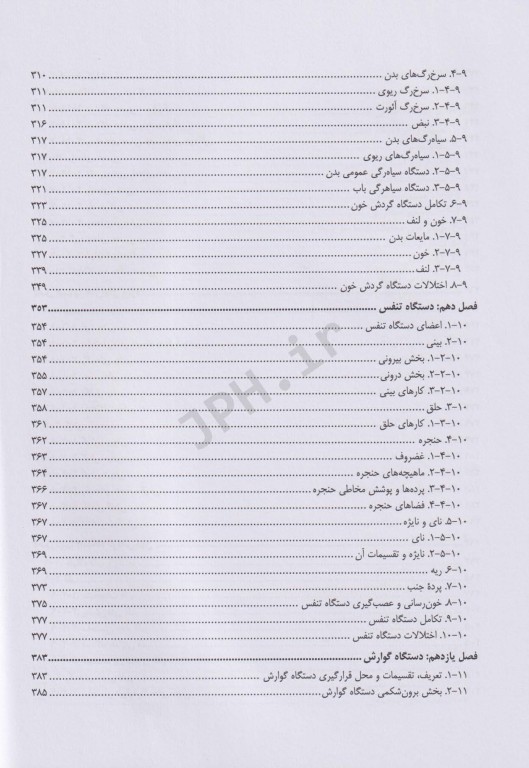 ۹-۴. سرخ‌رگ‌های بدن ... ۳۱۰
۹-۴-۱. سرخ‌رگ ریوی ... ۳۱۱
۹-۴-۲. سرخ‌رگ آئورت ... ۳۱۱
۹-۴-۳. نبض ... ۳۱۶
۹-۵. سیاه‌رگ‌های بدن ... ۳۱۷
۹-۵-۱. سیاه‌رگ‌های ریوی ... ۳۱۷
۹-۵-۲. دستگاه سیاه‌رگی عمومی بدن ... ۳۱۷
۹-۵-۳. دستگاه سیاهرگی باب ... ۳۲۱
۹-۶. تکامل دستگاه گردش خون ... ۳۲۳
۹-۷. خون و لنف ... ۳۲۵
۹-۷-۱. مایعات بدن ... ۳۲۵
۹-۷-۲. خون ... ۳۲۷
۹-۷-۳. لنف ... ۳۳۹
۹-۸. اختلالات دستگاه گردش خون ... ۳۴۹
فصل دهم: دستگاه تنفس ... ۳۵۳
۱۰-۱. اعضای دستگاه تنفس ... ۳۵۴
۱۰-۲. بینی ... ۳۵۴
۱۰-۲-۱. بخش بیرونی ... ۳۵۴
۱۰-۲-۲. بخش درونی ... ۳۵۵
۱۰-۲-۳. کارهای بینی ... ۳۵۷
۱۰-۳. حلق ... ۳۵۸
۱۰-۳-۱. کارهای حلق ... ۳۶۱
۱۰-۴. حنجره ... ۳۶۲
۱۰-۴-۱. غضروف ... ۳۶۳
۱۰-۴-۲. ماهیچه‌های حنجره ... ۳۶۴
۱۰-۴-۳. پرده‌ها و پوشش مخاطی حنجره ... ۳۶۶
۱۰-۴-۴. فضاهای حنجره ... ۳۶۷
۱۰-۵. نای و نایژه ... ۳۶۷
۱۰-۵-۱. نای ... ۳۶۷
۱۰-۵-۲. نایژه و تقسیمات آن ... ۳۶۹
۱۰-۶. ریه ... ۳۶۹
۱۰-۷. پردهٔ جنب ... ۳۷۳
۱۰-۸. خون‌رسانی و عصب‌گیری دستگاه تنفس ... ۳۷۵
۱۰-۹. تکامل دستگاه تنفس ... ۳۷۷
۱۰-۱۰. اختلالات دستگاه تنفس ... ۳۷۷
فصل یازدهم: دستگاه گوارش ... ۳۸۳
۱۱-۱. تعریف، تقسیمات و محل قرارگیری دستگاه گوارش ... ۳۸۳
۱۱-۲. بخش برون‌شکمی دستگاه گوارش ... ۳۸۵
JPH.ir